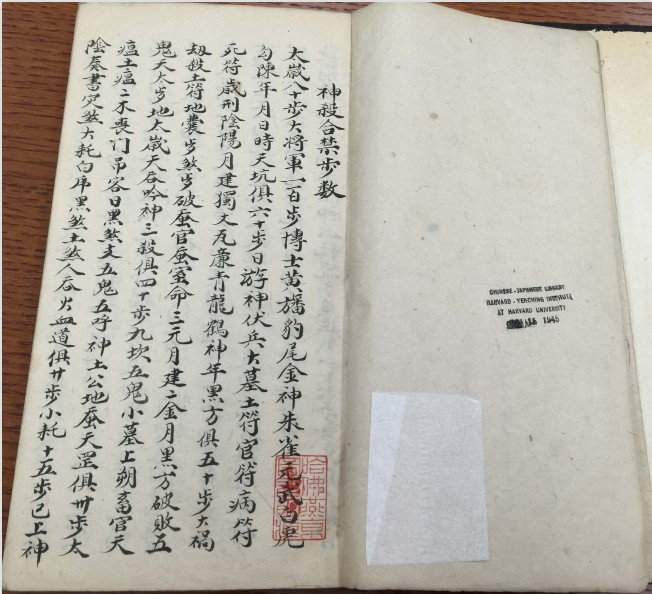 神殺合禁步数
太歲八十步大将軍一百步博士黄旛豹尾金神朱雀元武白虎
勾陳年月日時天坑俱六十步日游神伏兵大墓土符官符病符
死符歲刑陰陽月建獨火瓦廉青龍鶴神年黑方俱五十步大禍
劫殺土符地囊步煞歩破蚕官蚕室命三元月建二金月黑方破敗五
鬼天太歩地太歲天吞吟神三殺俱四十步九坎五鬼小墓上朔畜官天
瘟土瘟二木喪门吊客日黑煞支五鬼五呼神土公地蚕天罡俱卅步太
陰奏書灾煞大耗白虎黑煞土煞人吞火血道俱廿步小耗十五步已上神
CHINESE-JAPANESE LIBRARY
HARVARD-YENCHING INSTITUTE
AT HARVARD UNIVERSITY
1945